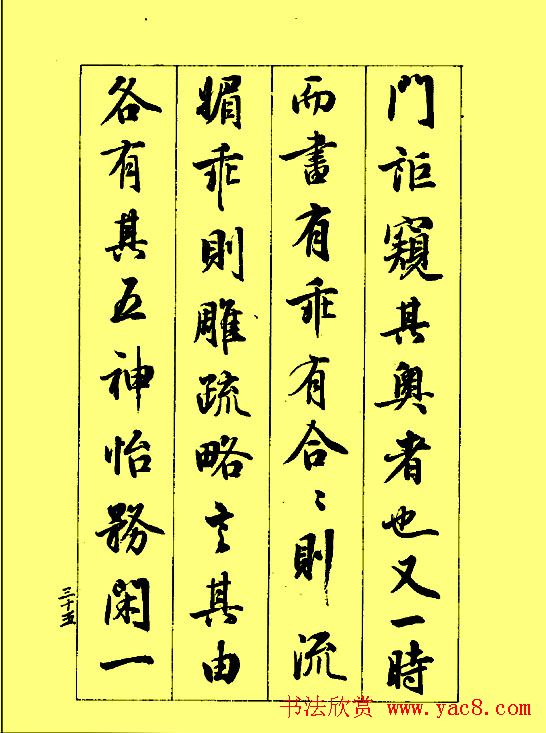 門詎窺其奧者也又一時
而書有乖有合〻則流
媚乖則雕疏略言其由
各有其五神怡務閑一
三十五
书法欣赏 www.yac8.com